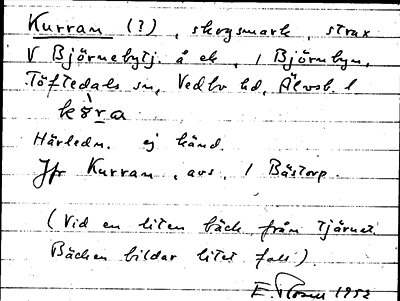 Kurran (?), skogsmark, strax
V Björnebytj. å ek, / Björnbyn,
Töftedals sn, Vedbo hd, Älvsb. l
kö̀ra
Härledn. ej känd.
Jfr Kurran, avs, / Bästorp.
(Vid en liten bäck från tjärnet
Bäcken bildar litet fall)
E. 1952